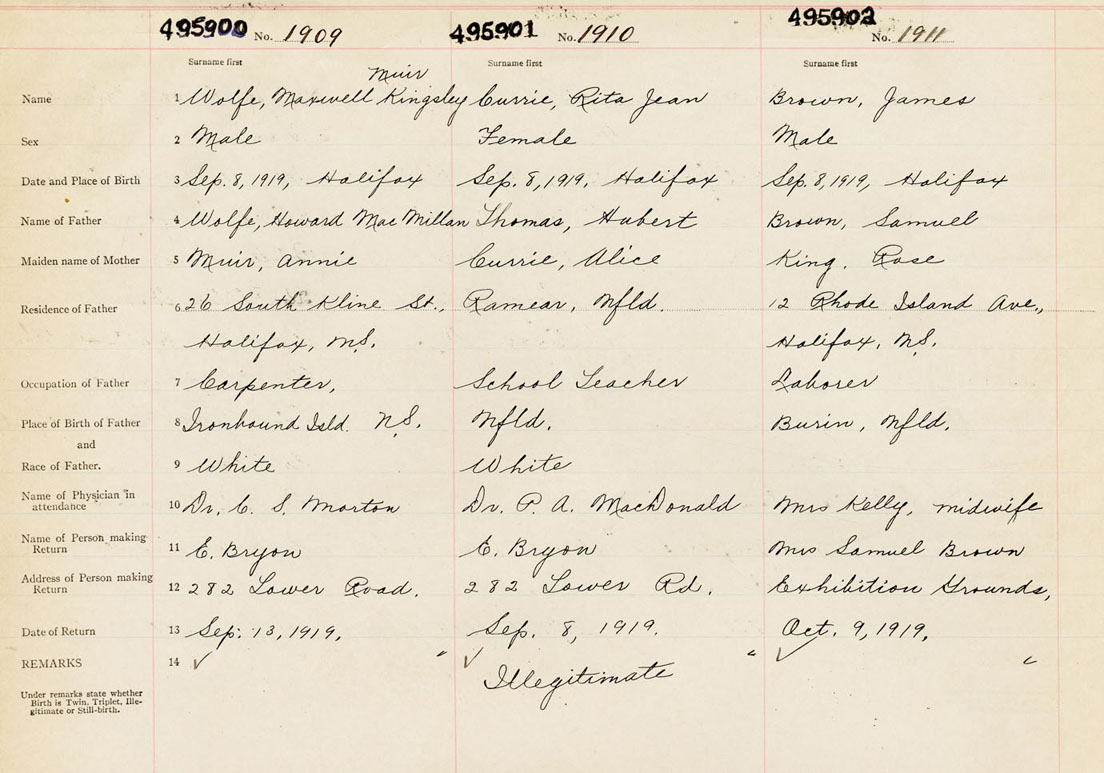 495900 No. 1909 495901 No. 1910 495902 No. 1911
Surname first Surname first Surname first
Muir
Name 1 Wolfe, Maxwell Kingsley Currie, Rita Jean Brown, James
Sex 2 Male Female Male
Date and Place of Birth 3 Sep. 8, 1919, Halifax Sep. 8, 1919, Halifax Sep. 8, 1919, Halifax
Name of Father 4 Wolfe, Howard MacMillan Thomas, Hubert Brown, Samuel
Maiden name of Mother 5 Muir, Annie Currie, Alice King. Rose
Residence of Father 6 26 South Kline St., Ramear, Nfld. 12 Rhode Island Ave.,
Halifax, N.S. Halifax, N.S.
Occupation of Father 7 Carpenter, School Teacher Laborer
Place of Birth of Father 8 Ironbound Isld. N.S. Nfld. Burin, Nfld.
and
Race of Father. 9 White White
Name of Physician in
attendance 10 Dr. C. S. Morton Dr. P. A. MacDonald Mrs Kelly, midwife
Name of Person making
Return 11 E. Bryon E. Bryon Mrs Samuel Brown
Address of Person making
Return 12 282 Lower Road. 282 Lower Rd. Exhibition Grounds,
Date of Return 13 Sep. 13, 1919. Sep. 8, 1919. Oct. 9, 1919.
REMARKS 14 ✓ " ✓ " ✓ "
Illegitimate
Under remarks state whether
Birth is Twin. Triplet, Ille-
gitimate or Still-birth.